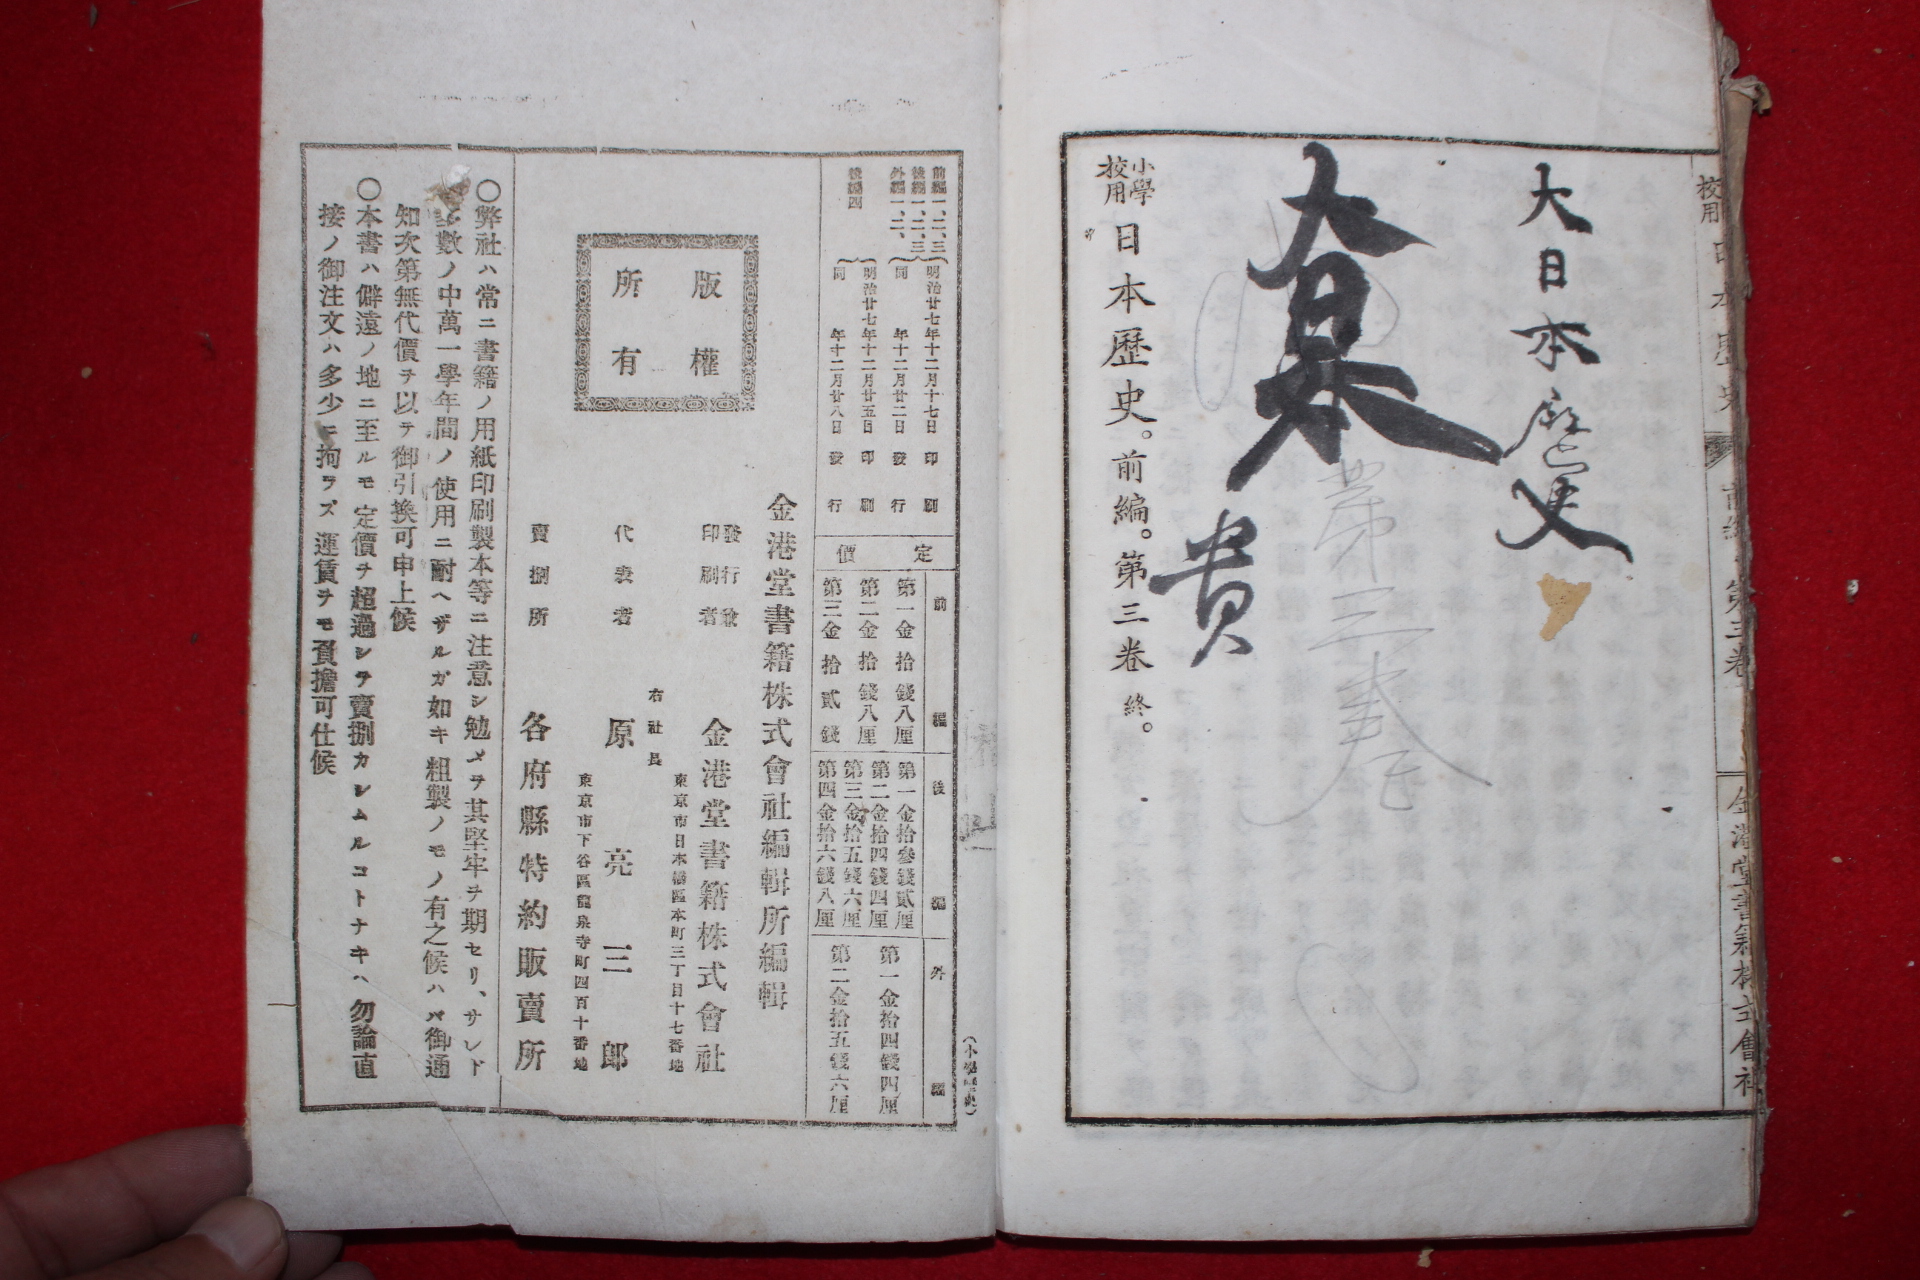 校用
大日本歴史
大日本
貴
第三巻
小學
校用
日本歷史。前編。第三卷終。
金港堂書籍株式會社
前編一、二、三
後編一、二、三
明治廿七年十二月十七日印刷
外編一、二、
同年十二月廿二日發行
後編四
明治廿七年十二月廿五日印刷
同年十二月廿八日發行
定價
前編
第一金拾錢八厘
第二金拾錢八厘
第三金拾貳錢
後編
第一金拾參錢貳厘
第二金拾四錢四厘
第三金拾五錢六厘
第四金拾六錢八厘
外編
第一金拾四錢四厘
第二金拾五錢六厘
版權
所有
金港堂書籍株式會社編輯所編輯
發行兼
印刷者
金港堂書籍株式會社
東京市日本橋區本町三丁目十七番地
右社長
代表者
原亮三郎
東京市下谷區龍泉寺町四百十番地
賣捌所
各府縣特約販賣所
〇弊社ハ常ニ書籍ノ用紙印刷製本等ニ注意シ勉メヲ其堅牢ヲ期セリ、サレド
多數ノ中萬一學年間ノ使用ニ耐ヘザルガ如キ粗製ノモノ有之候ハバ御通
知次第無代價ヲ以テ御引換可申上候
〇本書ハ僻遠ノ地ニ至ルモ定價ヲ超過シテ賣捌カレムルコトナキハ勿論直
接ノ御注文ハ多少ニ拘ラズ運賃ヲモ負擔可仕候